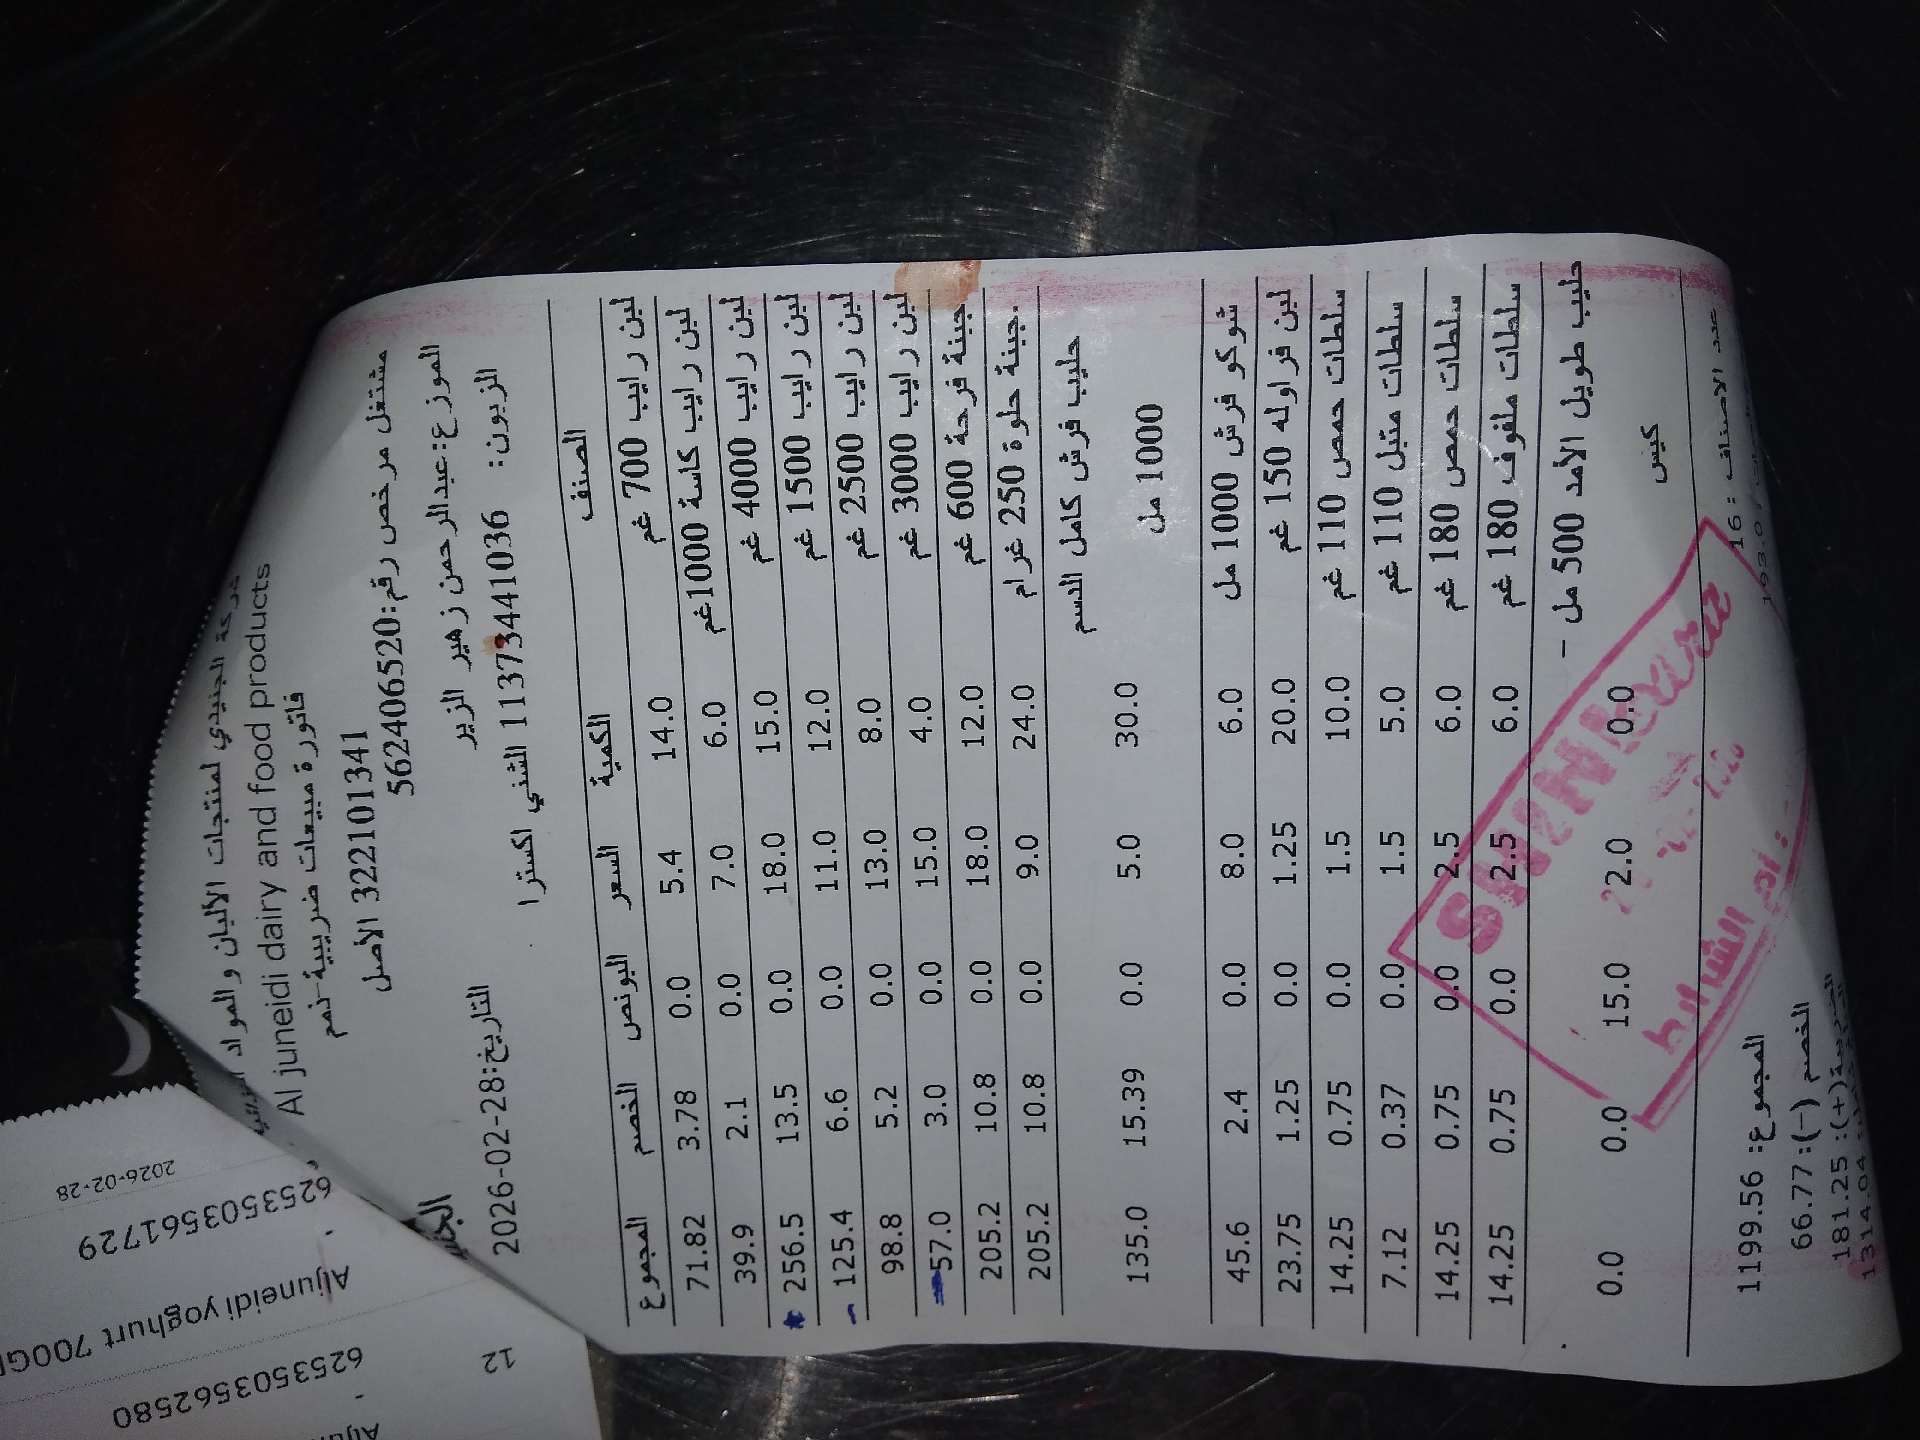 شركة الجنيدي لمنتجات الالبان والمواد
Al juneidi dairy and food products
فاتورة مبيعات ضريبية-نمم
3221101341 الأصل
مشتغل مرخص رقم:562406520
الموزع:عبدالرحمن زهير الزير
الزبون: 1137341036 الشني اكسترا
التاريخ:2026-02-28
الصنف الكمية السعر البونص الخصم المجموع
لبن رايب 700 غم 14.0 5.4 0.0 3.78 71.82
لبن رايب كاسة 1000غم 6.0 7.0 0.0 2.1 39.9
لبن رايب 4000 غم 15.0 18.0 0.0 13.5 256.5
لبن رايب 1500 غم 12.0 11.0 0.0 6.6 125.4
لبن رايب 2500 غم 8.0 13.0 0.0 5.2 98.8
لبن رايب 3000 غم 4.0 15.0 0.0 3.0 57.0
جبنة فرحة 600 غم 12.0 18.0 0.0 10.8 205.2
جبنة حلوة 250 غرام 24.0 9.0 0.0 10.8 205.2
حليب فرش كامل الدسم
1000 مل 30.0 5.0 0.0 15.39 135.0
شوكو فرش 1000 مل 6.0 8.0 0.0 2.4 45.6
لبن فراوله 150 غم 20.0 1.25 0.0 1.25 23.75
سلطات حمص 110 غم 10.0 1.5 0.0 0.75 14.25
سلطات متبل 110 غم 5.0 1.5 0.0 0.37 7.12
سلطات حمص 180 غم 6.0 2.5 0.0 0.75 14.25
سلطات ملفوف 180 غم 6.0 2.5 0.0 0.75 14.25
حليب طويل الأمد 500 مل -
كيس 0.0 2.0 15.0 0.0 0.0
عدد الاصناف: 16
193.0
المجموع: 1199.56
الخصم (-): 66.77
الضريبة(+): 181.25
1314.04
2026-02-28
6253503561729
Aljuneidi yoghurt 700G
12
6253503562580